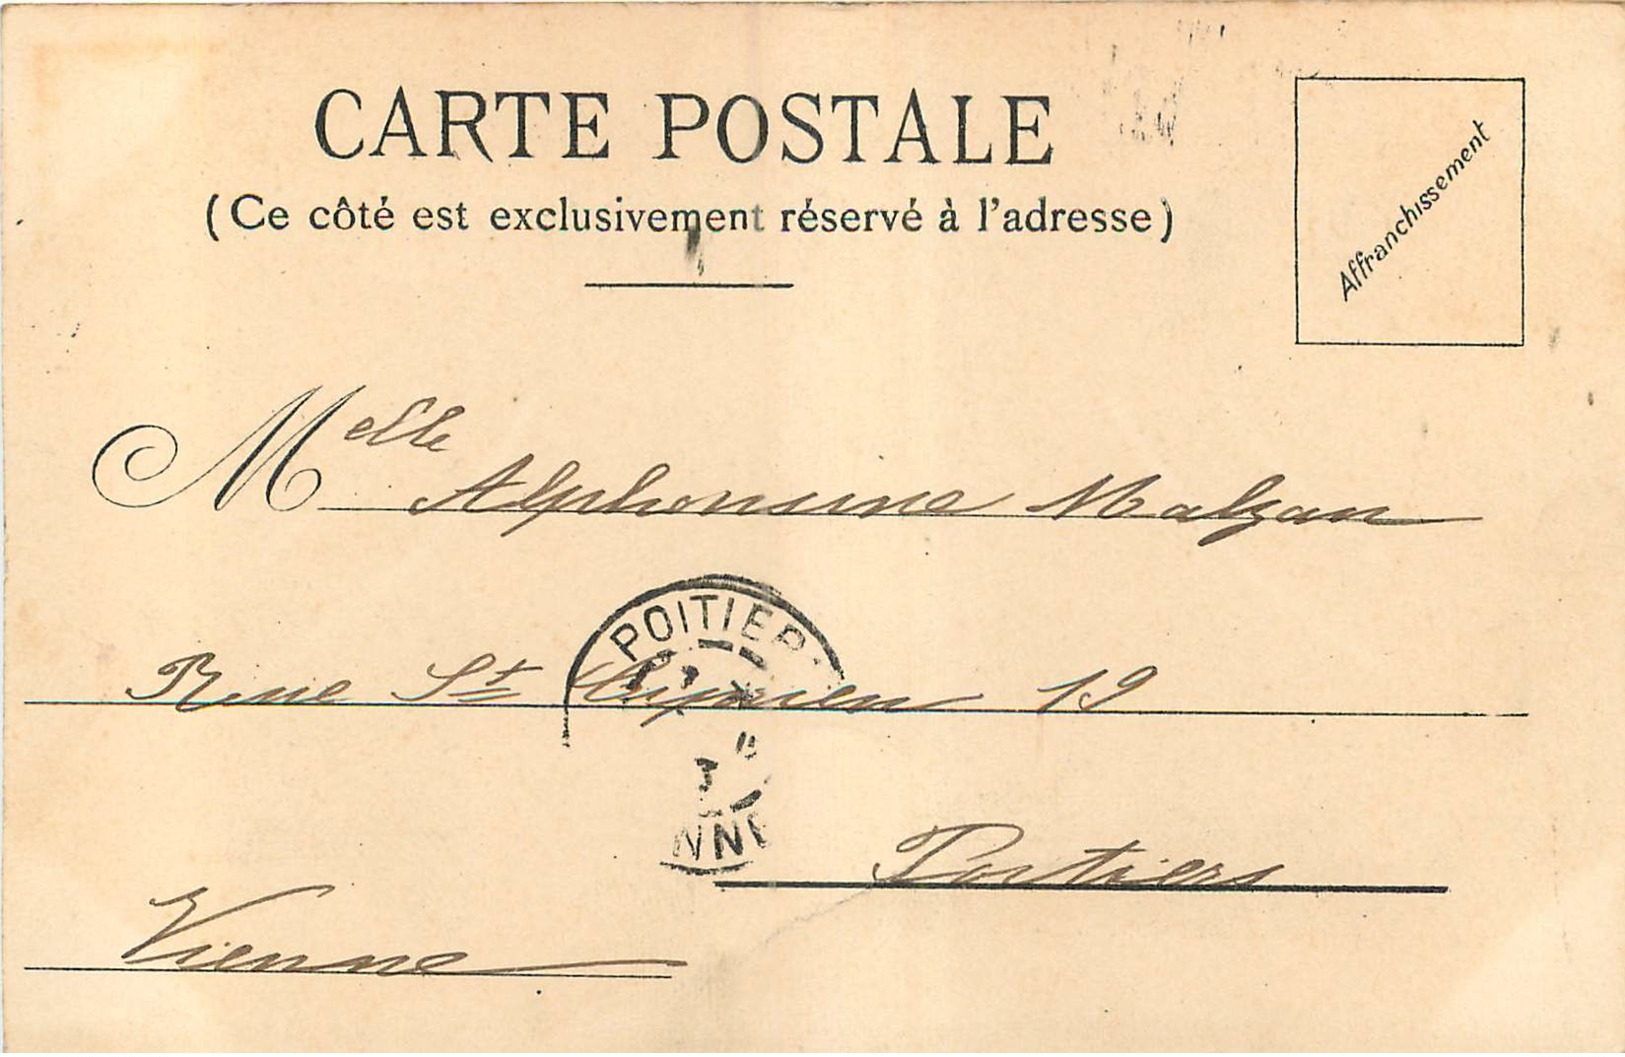 CARTE POSTALE
(Ce côté est exclusivement réservé à l'adresse)
Affranchissement
Melle Alphonsine Malzan
POITIERS
Rue St Cyprien 19
Poitiers
Vienne